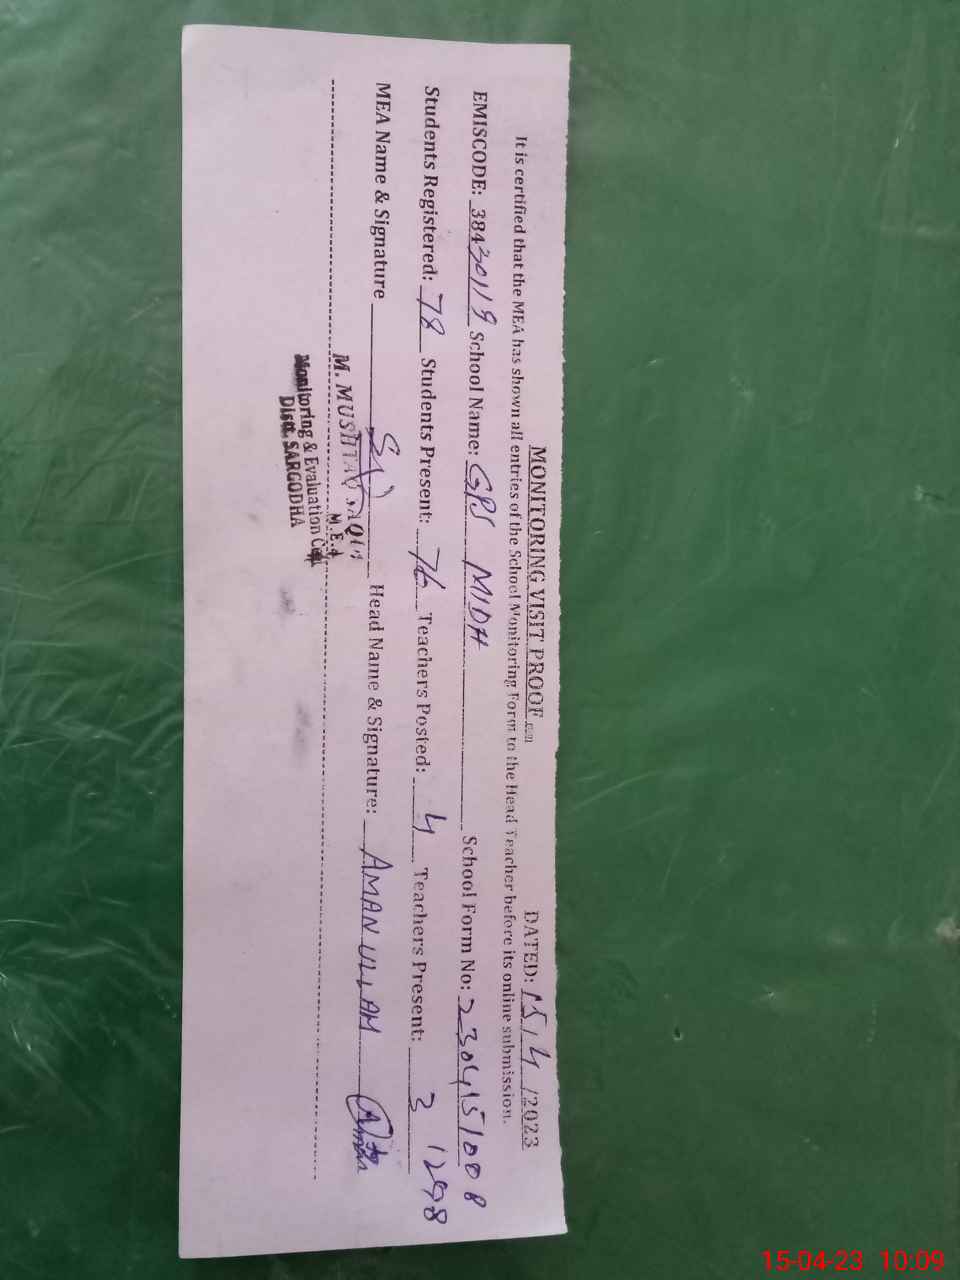 MONITORING VISIT PROOF
DATED: 15/4/2023
It is certified that the MEA has shown all entries of the School Monitoring Form to the Head Teacher before its online submission.
EMISCODE: 38430119 School Name: GPS MIDH School Form No: 2304151008
1298
Students Registered: 78 Students Present: 76 Teachers Posted: 4 Teachers Present: 3
MEA Name & Signature Head Name & Signature: AMAN ULLAH
M. MUSHTAQ
M.E.A
Monitoring & Evaluation Cell
Distt. SARGODHA
15-04-23 10:09